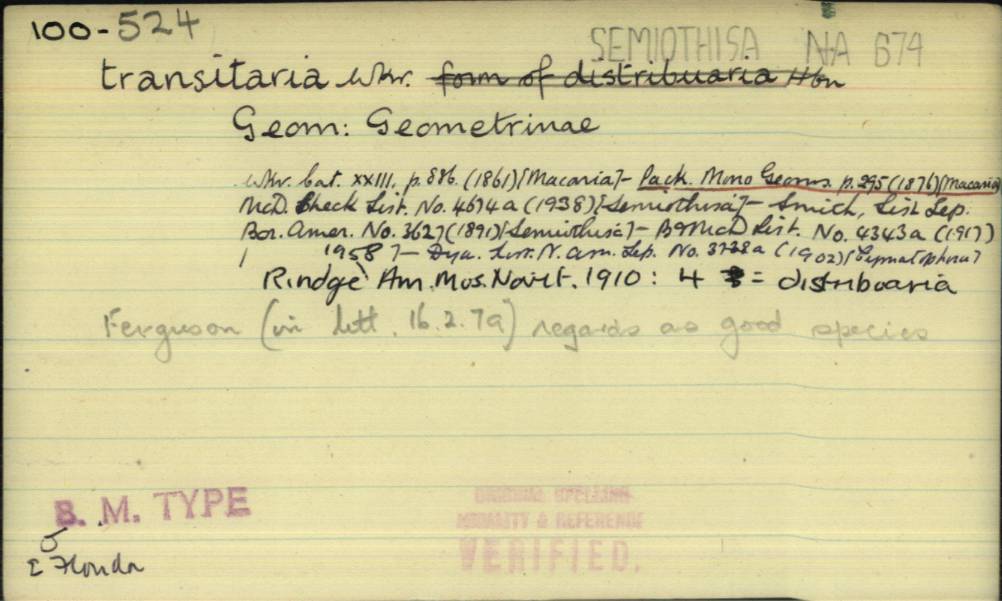 100-524
SEMIOTHISA NA 674
transitaria Wkr. form of distribuaria Hbn
Geom: Geometrinae
Wkr. Cat. XXIII, p. 886. (1861) [Macaria] - Pack. Mono Geoms. p. 295 (1876) [Macaria]
McD. Check List. No. 4674a (1938) [Semiothisa] - Smith, List Lep.
Bor. Amer. No. 3627 (1891) [Semiothisa] - B & McD List. No. 4343a (1917)
1958] - Dya. List. N. Am. Lep. No. 3738a (1902)
Rindge Am. Mus. Novit. 1910: 4 = distribuaria
Ferguson (in litt. 16.2.79) regards as good species
B. M. TYPE
ORIGINAL SPELLING
& REFERENCE
VERIFIED.
E Florida